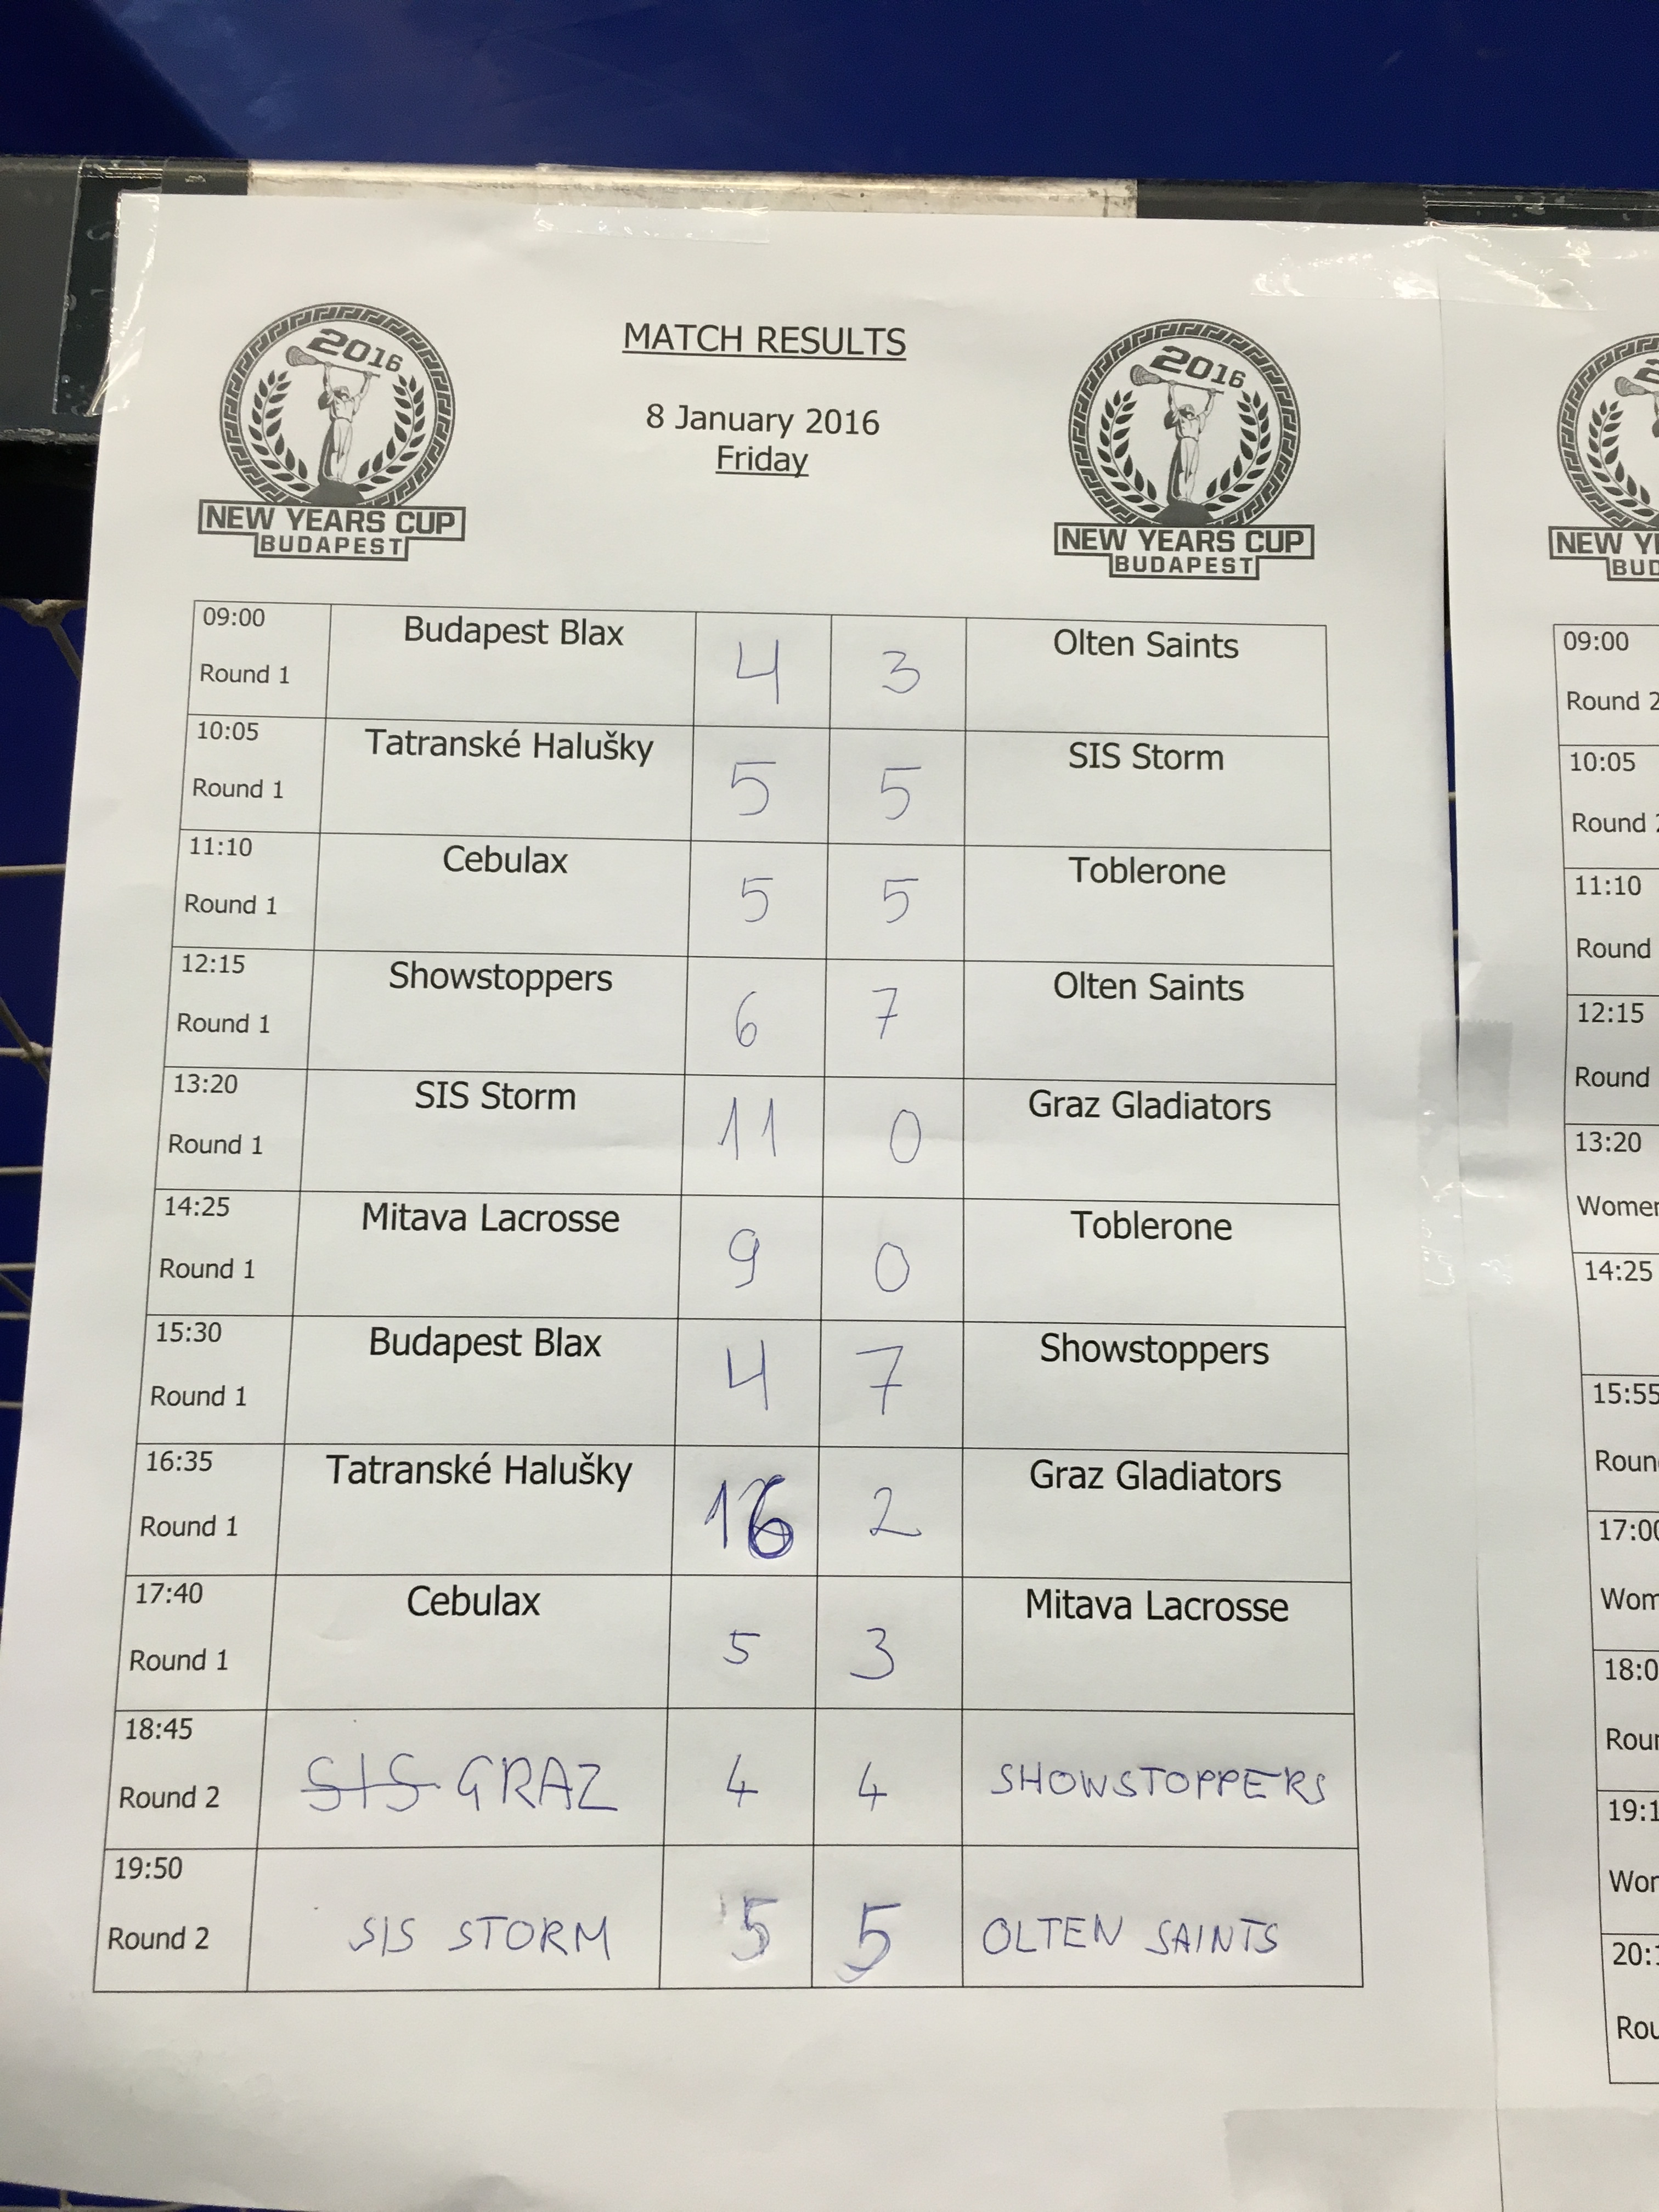 2016
NEW YEARS CUP
BUDAPEST
MATCH RESULTS
8 January 2016
Friday
2016
NEW YEARS CUP
BUDAPEST
09:00 Budapest Blax 4 3 Olten Saints
Round 1
10:05 Tatranské Halušky 5 5 SIS Storm
Round 1
11:10 Cebulax 5 5 Toblerone
Round 1
12:15 Showstoppers 6 7 Olten Saints
Round 1
13:20 SIS Storm 11 0 Graz Gladiators
Round 1
14:25 Mitava Lacrosse 9 0 Toblerone
Round 1
15:30 Budapest Blax 4 7 Showstoppers
Round 1
16:35 Tatranské Halušky 16 2 Graz Gladiators
Round 1
17:40 Cebulax 5 3 Mitava Lacrosse
Round 1
18:45 SIS GRAZ 4 4 SHOWSTOPPERS
Round 2
19:50 SIS STORM 5 5 OLTEN SAINTS
Round 2
NEW
09:00
Round 2
10:05
Round
11:10
Round
12:15
Round
13:20
14:25
15:55